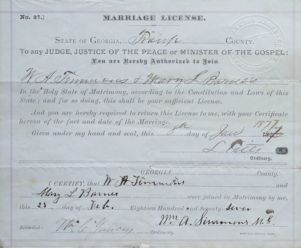 No. 37.)
MARRIAGE LICENSE.
STATE OF GEORGIA, COUNTY.
To any JUDGE, JUSTICE OF THE PEACE or MINISTER OF THE GOSPEL:
You are Hereby Authorized to Join
W. A. Timmons & Mary L Barnes
In the Holy State of Matrimony, according to the Constitution and Laws of this
State; and for so doing, this shall be your sufficient License.
And you are hereby required to return this License to me, with your Certificate
hereon of the fact and date of the Marriage.
Given under my hand and seal, this day of Jan 1877
Ordinary.
GEORGIA, County.
I CERTIFY, that W. A. Timmons and
Mary L Barnes were joined in Matrimony by me,
this 23 day of Feb. Eighteen Hundred and Seventy Seven
Recorded: Wm A. Simmons M.G.
Ordinary.